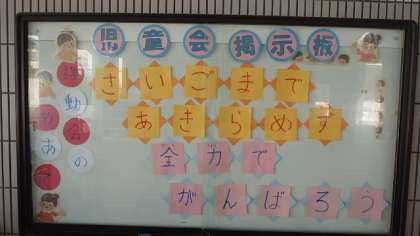 児童会掲示板
さいごまで
あきらめず
全力で
がんばろう
運動会
めあて